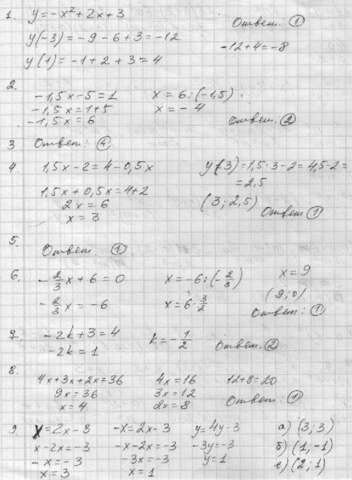 1. y=-x²+2x+3 Ответ ①
y(-3)=-9-6+3=-12 -12+4=-8
y(1)=-1+2+3=4
2.
-1,5x-5=1 x=6:(-1,5)
-1,5x=1+5 x=-4
-1,5x=6 Ответ: ②
3 Ответ: ④
4. 1,5x-2=4-0,5x y(3)=1,5·3-2=4,5-2=
1,5x+0,5x=4+2 =2,5
2x=6 (3; 2,5)
x=3 Ответ
5.
Ответ ①
6. -2/3x+6=0 x=-6:(-2/3) x=9
-2/3x=-6 x=6·3/2 (9;0)
Ответ: ①
7. -2k+3=4 k=-1/2 Ответ: ②
-2k=1
8.
4x+3x+2x=36 4x=16 12+8=20
9x=36 3x=12
x=4 2x=8 Ответ
9. x=2x-3 -x=2x-3 y=4y-3 а) (3; 3)
x-2x=-3 -x-2x=-3 -3y=-3 б) (1,-1)
-x=-3 -3x=-3 y=1 (2; 1)
x=3 x=1